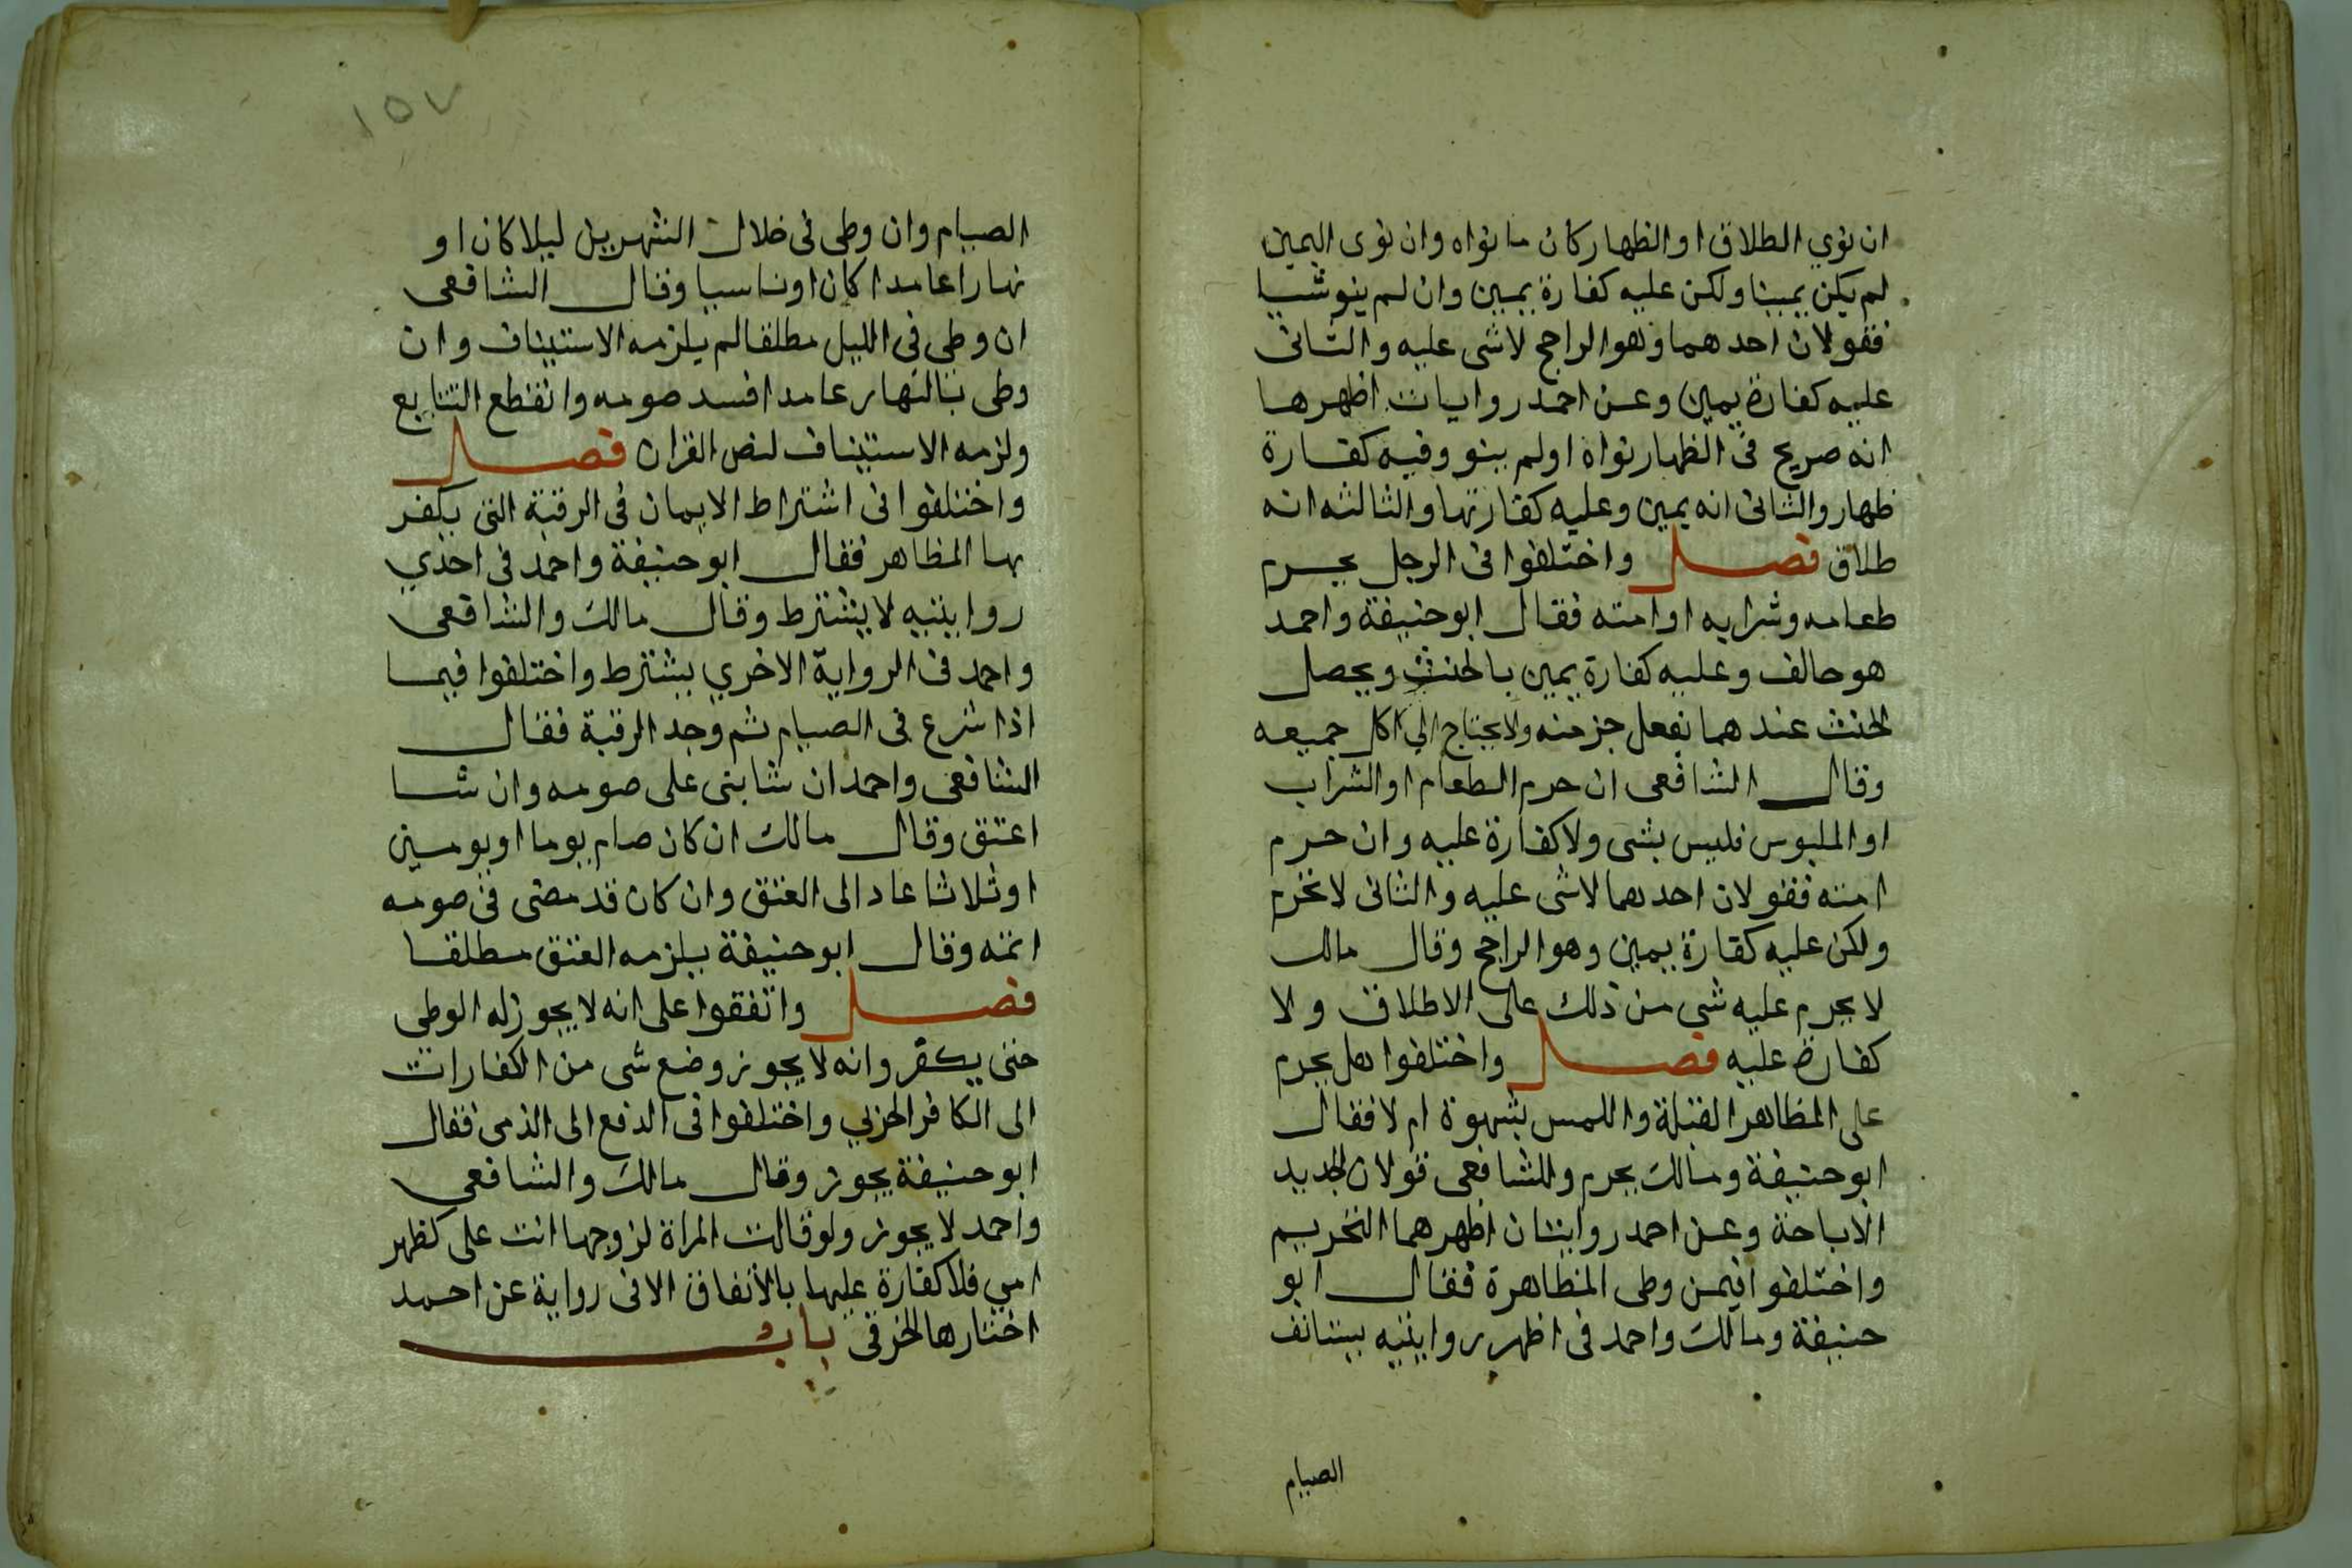 ان نوي الطلاق او الظهار كان ما نواه وان نوى اليمين
لم يكن يمينا ولكن عليه كفارة يمين وان لم ينو شيا
فقولان احدهما وهو الراجح لاشى عليه والثانى
عليه كفارة يمين وعن احمد روايات اظهرها
انه صريح فى الظهار نواه اولم ينو وفيه كفارة
ظهار والثانى انه يمين وعليه كفارتها والثالثه انه
طلاق فصل واختلفوا فى الرجل يحرم
طعامه وشرابه او امته فقال ابو حنيفة واحمد
هو حالف وعليه كفارة يمين بالحنث ويحصل
الحنث عندهما بفعل جز منه ولا يحتاج الي اكل جميعه
وقال الشافعى ان حرم الطعام او الشراب
او الملبوس فليس بشى ولا كفارة عليه وان حرم
امته فقولان احدهما لاشى عليه والثانى لا تحرم
ولكن عليه كفارة يمين وهو الراجح وقال مالك
لا يحرم عليه شى من ذلك على الاطلاق ولا
كفارة عليه فصل واختلفوا هل يحرم
على المظاهر القبلة واللمس بشهوة ام لا فقال
ابو حنيفة ومالك يحرم وللشافعى قولان الجديد
الاباحة وعن احمد روايتان اظهرهما التحريم
واختلفوا فيمن وطى المظاهرة فقال ابو
حنيفة ومالك واحمد فى اظهر روايتيه يستانف
الصيام
١٥٧
الصيام وان وطى فى خلال الشهرين ليلا كان او
نهارا عامدا كان او ناسيا وقال الشافعى
ان وطي في الليل مطلقا لم يلزمه الاستيناف وان
وطى بالنهار عامدا فسد صومه وانقطع التتابع
ولزمه الاستيناف لنص القران فصل
واختلفوا فى اشتراط الايمان فى الرقبة التى يكفر
بها المظاهر فقال ابو حنيفة واحمد فى احدي
روايتيه لا يشترط وقال مالك والشافعى
واحمد فى الرواية الاخري يشترط واختلفوا فيما
اذا شرع فى الصيام ثم وجد الرقبة فقال
الشافعى واحمد ان شا بنى على صومه وان شا
اعتق وقال مالك ان كان صام يوما او يومين
او ثلاثا عاد الى العتق وان كان قد مضى فى صومه
اتمه وقال ابو حنيفة يلزمه العتق مطلقا
فصل واتفقوا على انه لا يجوز له الوطى
حتى يكفر وانه لا يجوز وضع شى من الكفارات
الى الكافر الحربي واختلفوا فى الدفع الى الذمى فقال
ابو حنيفة يجوز وقال مالك والشافعى
واحمد لا يجوز ولو قالت المراة لزوجها انت على كظهر
امي فلا كفارة عليها بالاتفاق الا فى رواية عن احمد
اختارها الخرقى باب